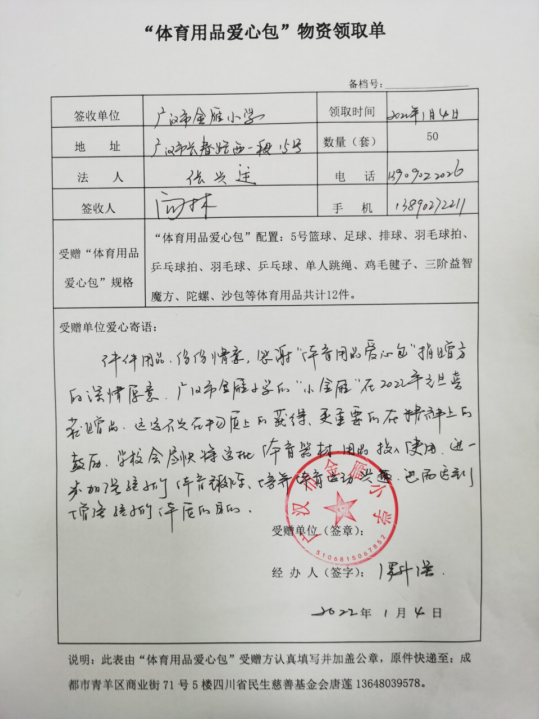 “体育用品爱心包”物资领取单
备档号：
签收单位 广汉市金雁小学 领取时间 2022年1月4日
地 址 广汉市长春路西一段15号 数量（套） 50
法 人 张兴莲 电 话 13909022026
签收人 手 机 13890272211
受赠“体育用品爱心包”规格
“体育用品爱心包”配置：5号篮球、足球、排球、羽毛球拍、
乒乓球拍、羽毛球、乒乓球、单人跳绳、鸡毛毽子、三阶益智
魔方、陀螺、沙包等体育用品共计12件。
受赠单位爱心寄语：
件件用品，份份情意，感谢“体育用品爱心包”捐赠方
的深情厚意。广汉市金雁小学的“小金雁”在2022年元旦喜
获赠品，这不仅在物质上的获得，更重要的在精神上的
鼓励。学校会尽快将这批体育器材、用品投入使用，进一
步加强孩子们体育锻炼，培养体育运动兴趣，从而达到
增强孩子们体质的目的。
受赠单位（签章）：
广汉市金雁小学
5106815067852
经 办 人（签字）：
2022年 1月 4日
说明：此表由“体育用品爱心包”受赠方认真填写并加盖公章，原件快递至：成
都市青羊区商业街 71 号 5 楼四川省民生慈善基金会唐莲 13648039578。